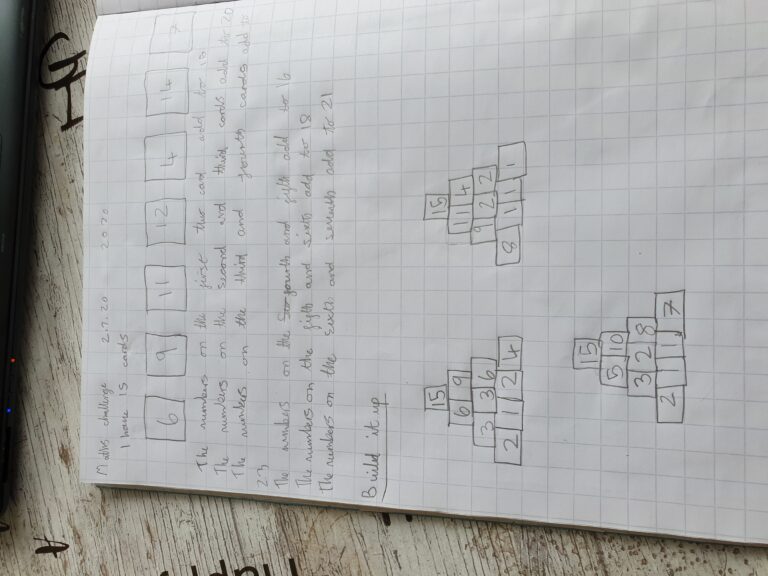 Maths challenge 2.7.20 2020
I have 15 cards
6 9 11 12 4 14 7
The numbers on the first two card add to 15
The numbers on the second and third cards add to 20
The numbers on the third and fourth cards add to
23
The numbers on the fourth and fifth add to 16
The numbers on the fifth and sixth add to 18
The numbers on the sixth and seventh add to 21
Build it up
15
6 9
3 3 6
2 1 2 4
15
11 4
9 2 2
8 1 1 1
15
5 10
3 2 8
2 1 1 7